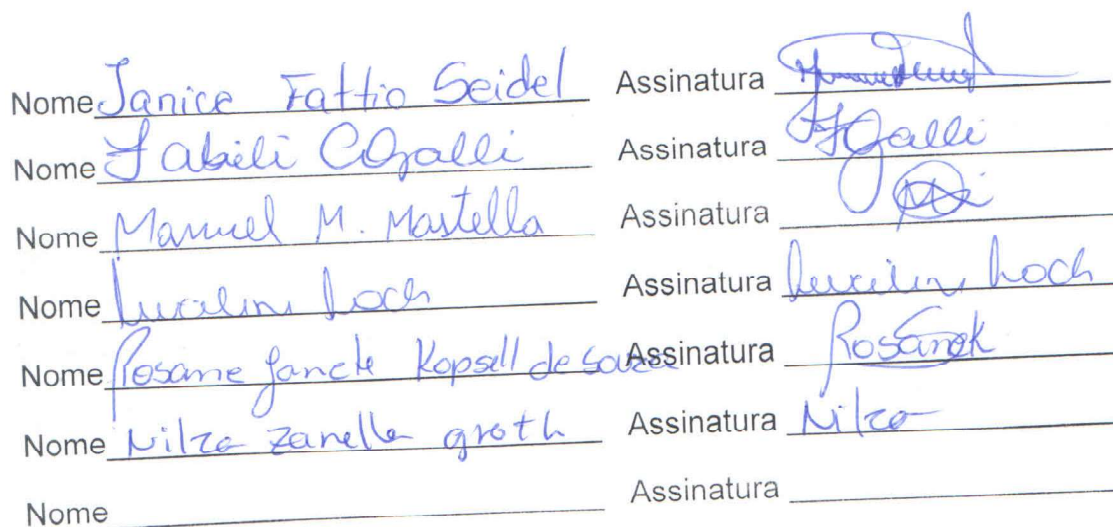 Nome Janice Fattio Seidel Assinatura
Nome Fabieli C Galli Assinatura FGalli
Nome Manuel M. Mastella Assinatura
Nome Lucilene Loch Assinatura Lucilene Loch
Nome Rosane Jancke Kopsell de Souza Assinatura RosaneK
Nome Nilza Zanella groth Assinatura Nilza
Nome Assinatura